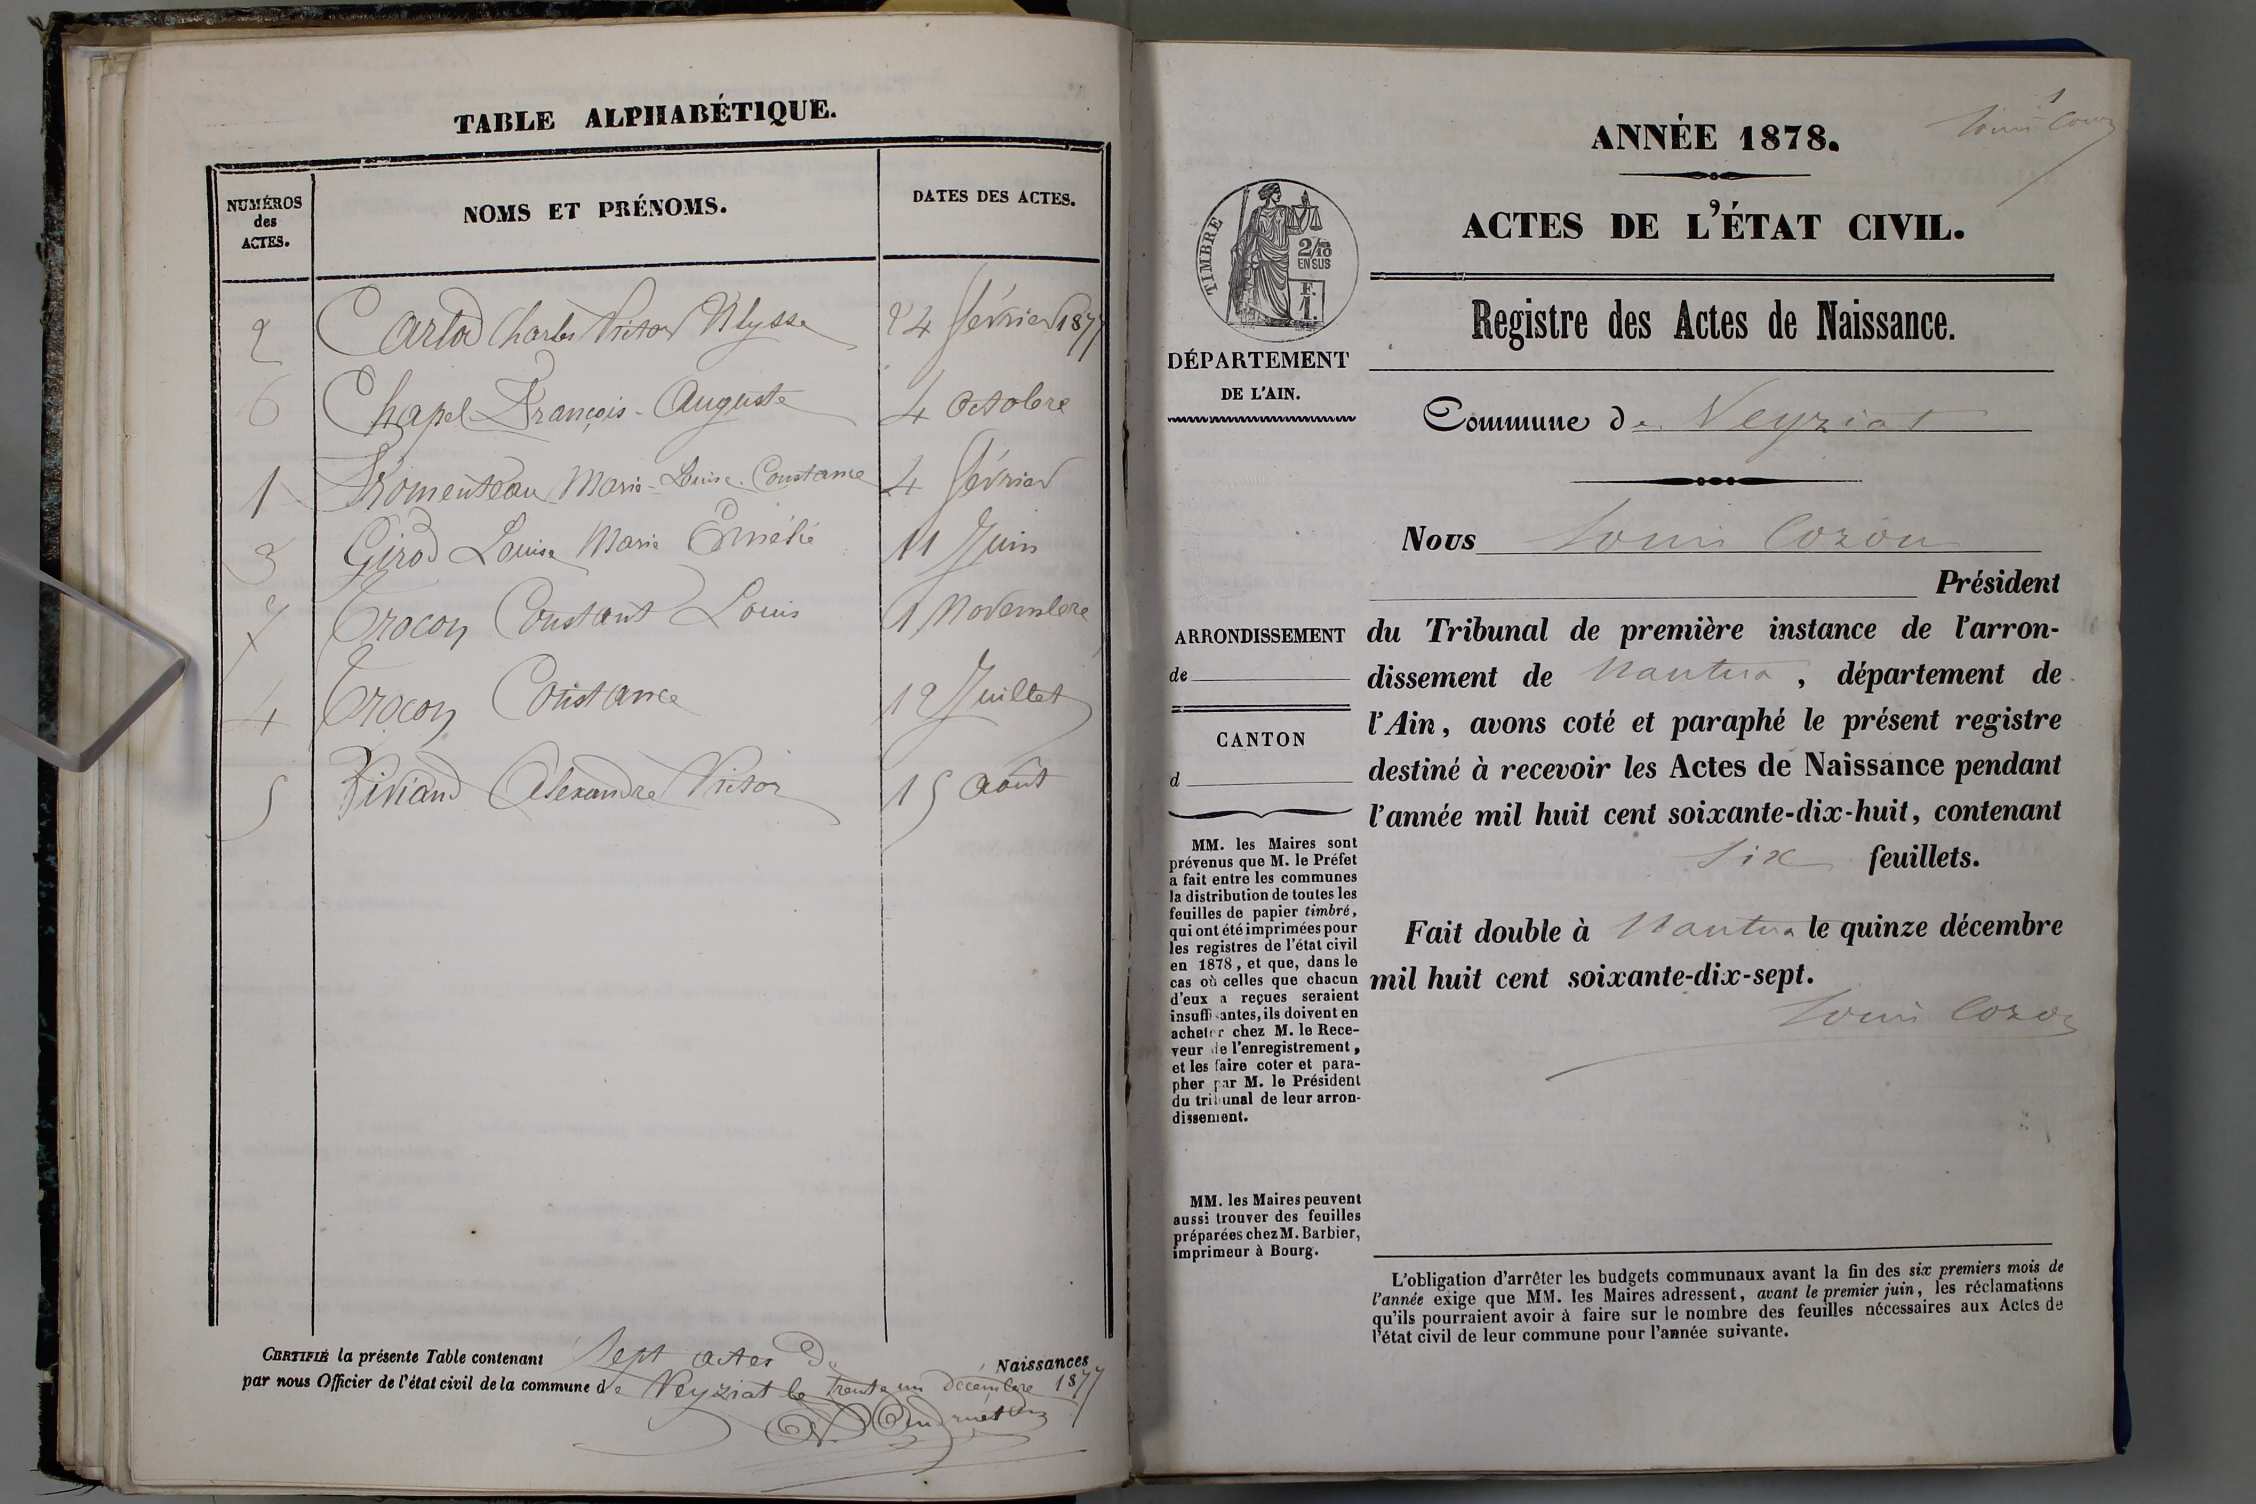 TABLE ALPHABÉTIQUE.
NUMÉROS
des
ACTES.
NOMS ET PRÉNOMS.
DATES DES ACTES.
2 Carlod Charles Victor Ulysse 24 février 1877
6 Chapel François-Auguste 4 octobre
1 Fromenteau Marie-Louise-Constance 4 février
3 Girod Louise Marie 11 Juin
7 Constant Louis 1 Novembre
4 Constance 12 Juillet
5 Alexandre Victor 15 août
CERTIFIÉ la présente Table contenant Sept actes de Naissances
par nous Officier de l'état civil de la commune de Veyziat le trente un décembre 1877
1
Louis Cozon
ANNÉE 1878.
ACTES DE L'ÉTAT CIVIL.
TIMBRE
2/10
EN SUS
F.
1.
Registre des Actes de Naissance.
DÉPARTEMENT
DE L'AIN.
Commune de Veyziat
Nous Louis Cozon
Président
ARRONDISSEMENT
de
CANTON
d
du Tribunal de première instance de l'arron-
dissement de Nantua, département de
l'Ain, avons coté et paraphé le présent registre
destiné à recevoir les Actes de Naissance pendant
l'année mil huit cent soixante-dix-huit, contenant
six feuillets.
Fait double à Nantua le quinze décembre
mil huit cent soixante-dix-sept.
Louis Cozon
MM. les Maires sont
prévenus que M. le Préfet
a fait entre les communes
la distribution de toutes les
feuilles de papier timbré,
qui ont été imprimées pour
les registres de l'état civil
en 1878, et que, dans le
cas où celles que chacun
d'eux a reçues seraient
insuffisantes, ils doivent en
acheter chez M. le Rece-
veur de l'enregistrement,
et les faire coter et para-
pher par M. le Président
du tribunal de leur arron-
dissement.
MM. les Maires peuvent
aussi trouver des feuilles
préparées chez M. Barbier,
imprimeur à Bourg.
L'obligation d'arrêter les budgets communaux avant la fin des six premiers mois de
l'année exige que MM. les Maires adressent, avant le premier juin, les réclamations
qu'ils pourraient avoir à faire sur le nombre des feuilles nécessaires aux Actes de
l'état civil de leur commune pour l'année suivante.